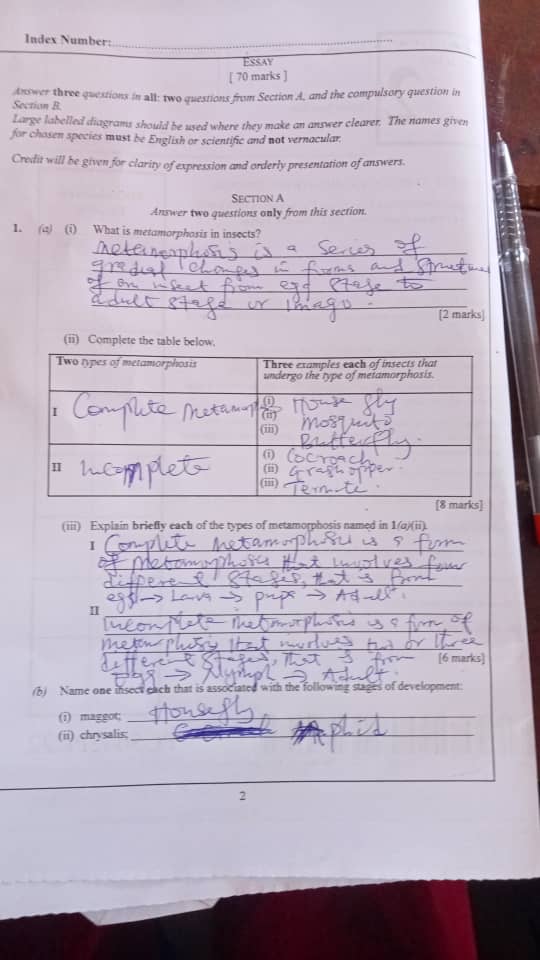 Index Number:
ESSAY
[ 70 marks ]
Answer three questions in all: two questions from Section A, and the compulsory question in
Section B.
Large labelled diagrams should be used where they make an answer clearer. The names given
for chosen species must be English or scientific and not vernacular.
Credit will be given for clarity of expression and orderly presentation of answers.
SECTION A
Answer two questions only from this section.
1. (a) (i) What is metamorphosis in insects?
metamorphosis is a series of
gradual changes in forms and structures
of an insect from egg stage to
adult stage or imago.
[2 marks]
(ii) Complete the table below.
Two types of metamorphosis
Three examples each of insects that
undergo the type of metamorphosis.
I Complete metamorp
(i) House fly
(ii) mosquito
(iii) Butterfly.
II Incomplete
(i) Cocroach
(ii) Grasshopper.
(iii) Termite.
[8 marks]
(iii) Explain briefly each of the types of metamorphosis named in 1(a)(ii).
I Complete metamorphosis is a form
of metamorphosis that involves four
different stages, that is from
egg → Lava → pupa → Adult.
II Incomplete metamorphosis is a form of
metamorphosis that involves two or three
different stages, that is from
Egg → Nymph → Adult.
[6 marks]
(b) Name one insect each that is associated with the following stages of development:
(i) maggot; Housefly
(ii) chrysalis; Aphid
2